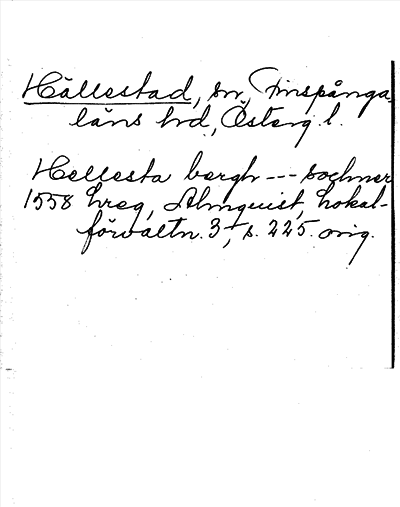 Hällestad, sn, Finspånga
läns hd, Österg. l.
Hellesta bergh --- sochner
1558 hreg, Almquist, Lokal-
förvaltn. 3, s. 225. orig.